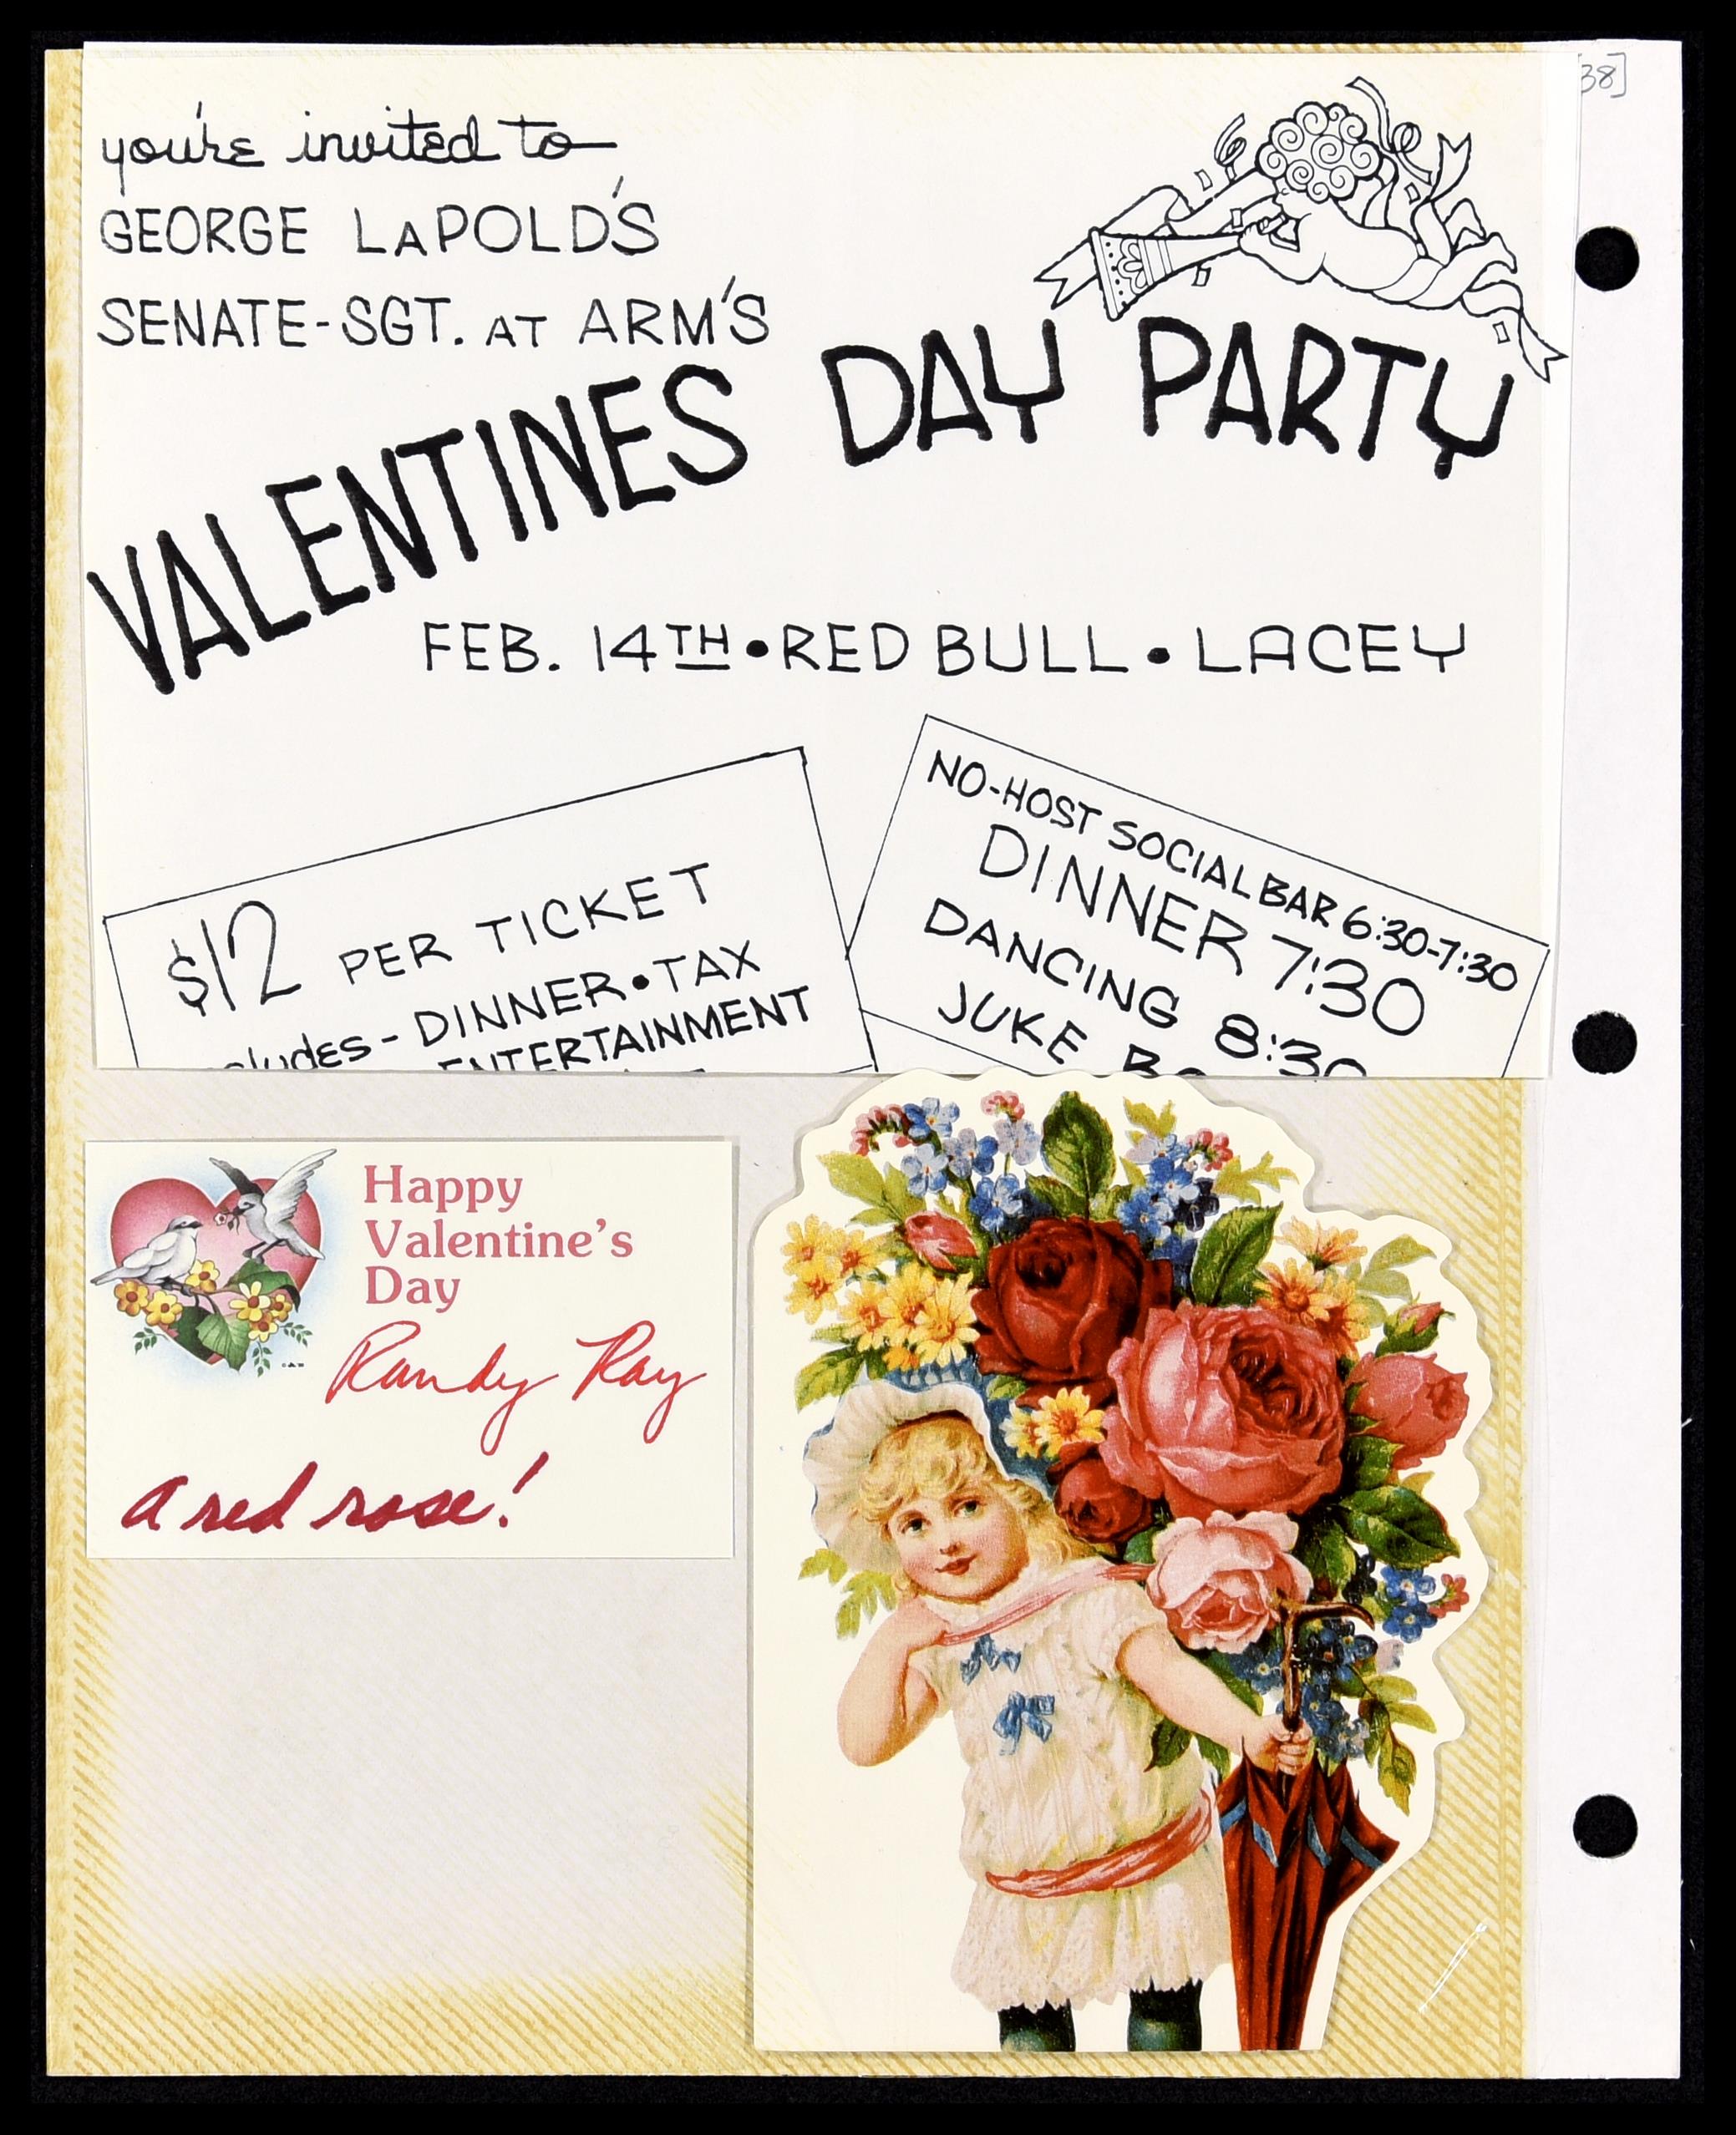 38]
you're invited to
GEORGE LAPOLD'S
SENATE-SGT. AT ARM'S
VALENTINES DAY PARTY
FEB. 14TH • RED BULL • LACEY
$12 PER TICKET
cludes - DINNER • TAX
ENTERTAINMENT
NO-HOST SOCIAL BAR 6:30-7:30
DINNER 7:30
DANCING 8:30
JUKE Bo
Happy
Valentine's
Day
Randy Ray
a red rose!